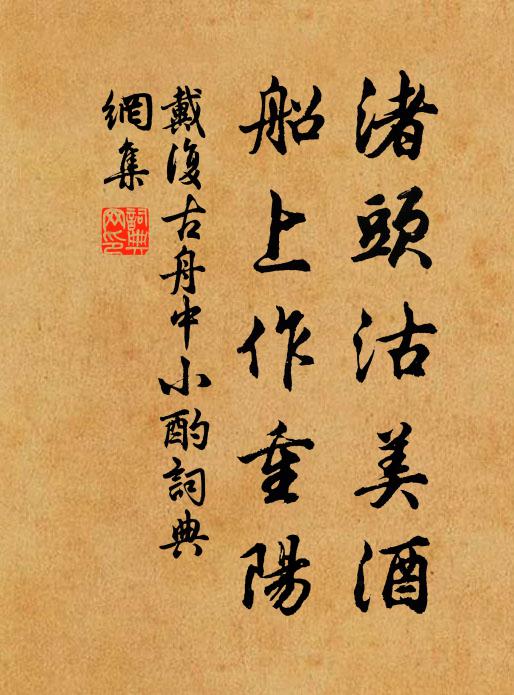 渚頭沽美酒
船上作重陽
戴復古舟中小酌詞典
網集
詞典網印